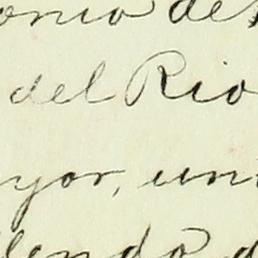 onio de
del Rio
yor, un
lendo d